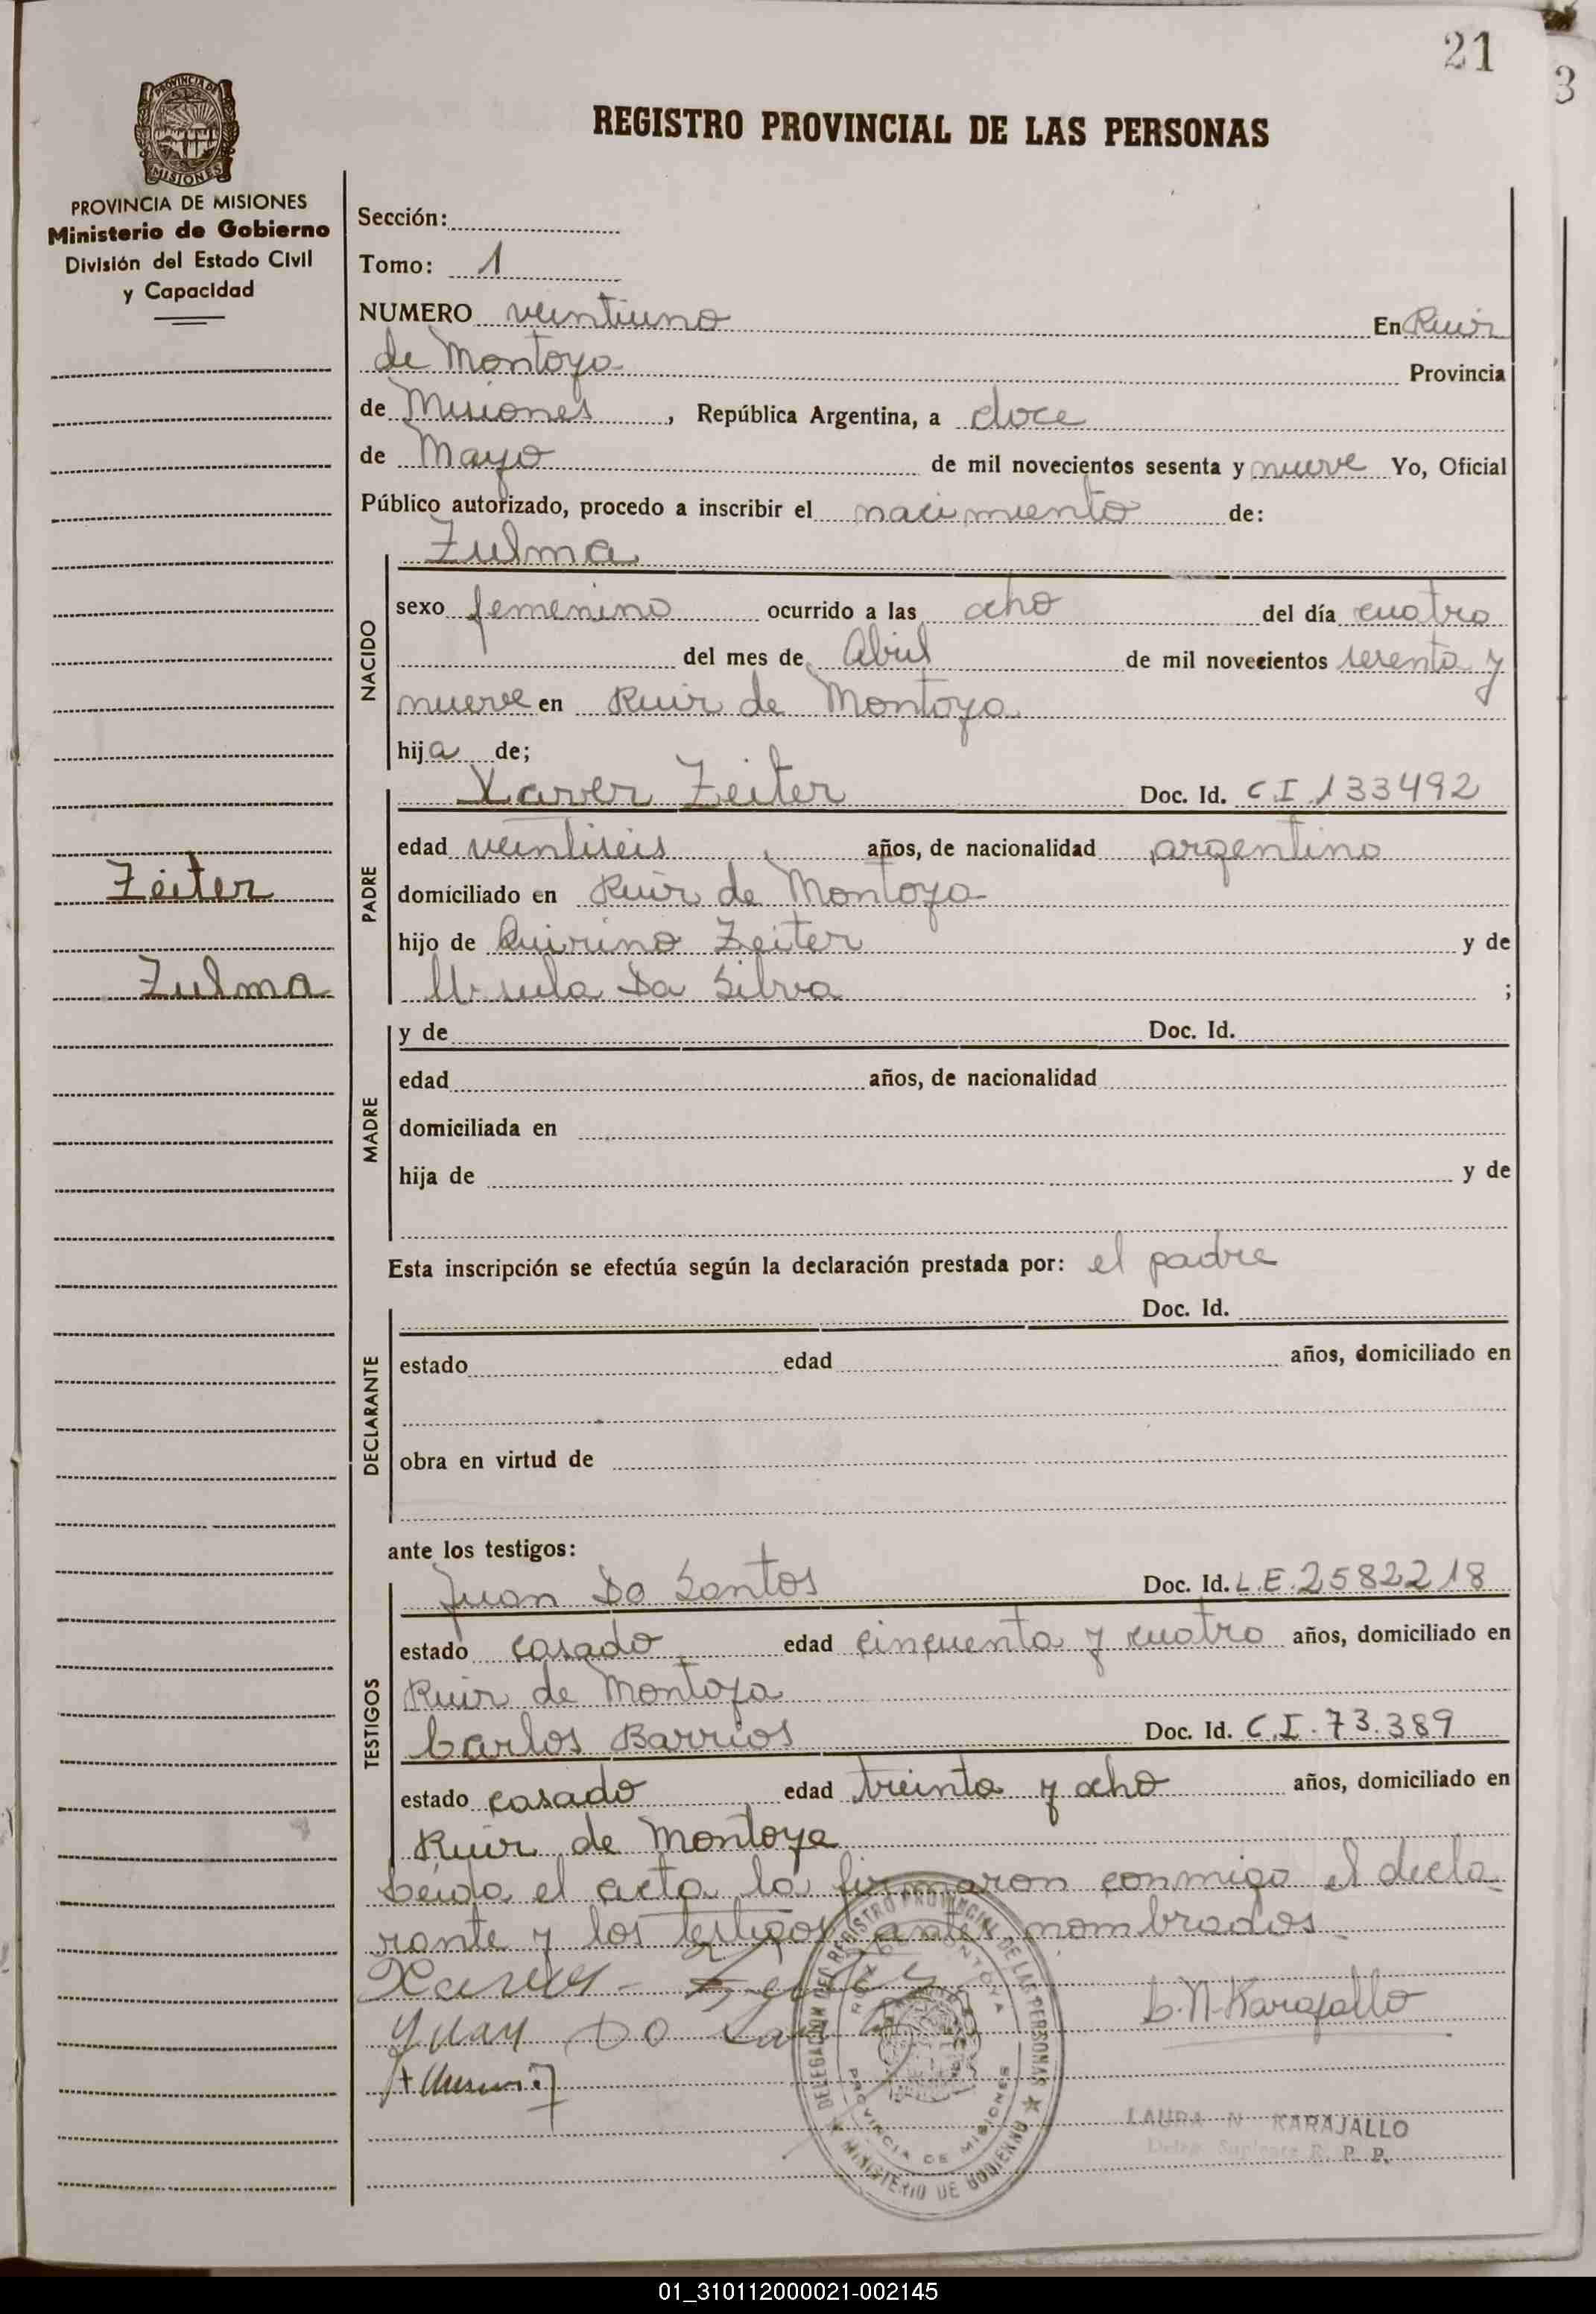 21
3
PROVINCIA DE MISIONES
PROVINCIA DE MISIONES
Ministerio de Gobierno
División del Estado Civil
y Capacidad
REGISTRO PROVINCIAL DE LAS PERSONAS
Sección:
Tomo: 1
NUMERO veintiuno En Ruiz
de Montoya Provincia
de Misiones, República Argentina, a doce
de Mayo de mil novecientos sesenta y nueve Yo, Oficial
Público autorizado, procedo a inscribir el nacimiento de:
Zulma
NACIDO
sexo femenino ocurrido a las ocho del día cuatro
del mes de Abril de mil novecientos sesenta y
nueve en Ruiz de Montoya
hija de;
Xaver Zeiter Doc. Id. C.I.133492
PADRE
edad veintiseis años, de nacionalidad argentino
domiciliado en Ruiz de Montoya
hijo de Quirino Zeiter y de
Ursula Da Silva ;
Zeiter
Zulma
MADRE
y de Doc. Id.
edad años, de nacionalidad
domiciliada en
hija de y de
Esta inscripción se efectúa según la declaración prestada por: el padre
DECLARANTE
Doc. Id.
estado edad años, domiciliado en
obra en virtud de
ante los testigos:
TESTIGOS
Juan Do Santos Doc. Id. L.E.2582218
estado casado edad cincuenta y cuatro años, domiciliado en
Ruiz de Montoya
Carlos Barrios Doc. Id. C.I.73.389
estado casado edad treinta y ocho años, domiciliado en
Ruiz de Montoya
Leida el acta la firmaron conmigo el decla-
rante y los testigos antes nombrados
Xaver - Zeiter
L.N.Karajallo
Juan Do
DELEGACION DEL REGISTRO PROVINCIAL DE LAS PERSONAS
RUIZ DE MONTOYA
PROVINCIA DE MISIONES
MINISTERIO DE GOBIERNO
LAURA N KARAJALLO
Deleg. Suplente R. P. P.
01_310112000021-002145